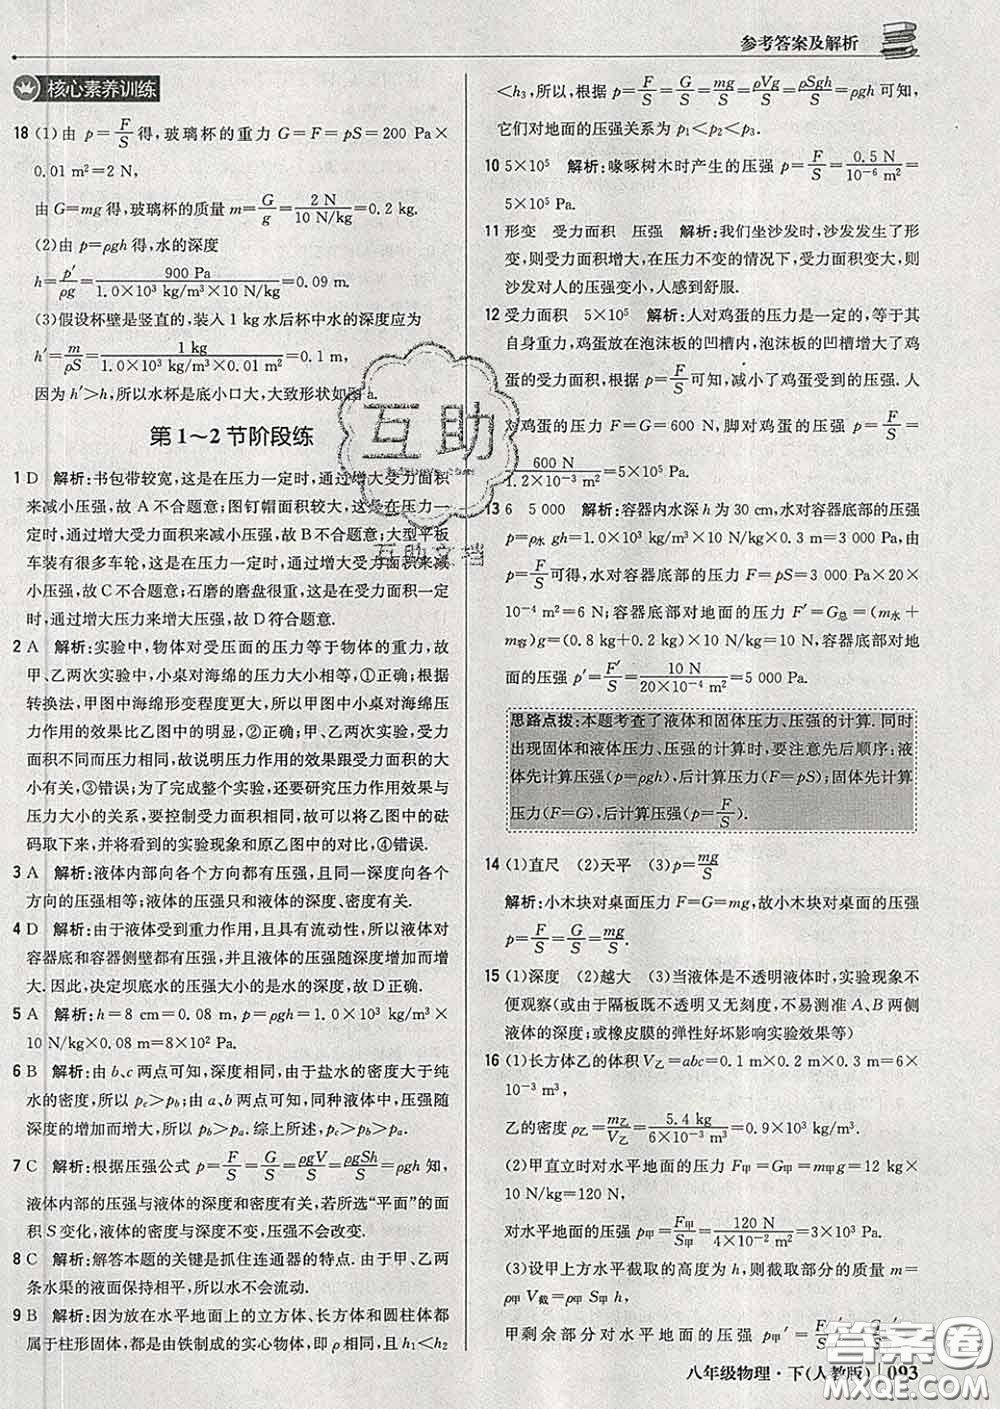 参考答案及解析
核心素养训练
18 (1)由 p=F/S 得,玻璃杯的重力 G=F=pS=200 Pa×
0.01 m²=2 N,
由 G=mg 得,玻璃杯的质量 m=G/g=2 N/10 N/kg=0.2 kg.
(2)由 p=ρgh 得,水的深度
h=p′/ρg=900 Pa/1.0×10³ kg/m³×10 N/kg=0.09 m.
(3)假设杯壁是竖直的,装入 1 kg 水后杯中水的深度应为
h′=m/ρS=1 kg/1.0×10³ kg/m³×0.01 m²=0.1 m,
因为 h′>h,所以水杯是底小口大,大致形状如图 a.
第 1～2 节阶段练
1 D 解析:书包带较宽,这是在压力一定时,通过增大受力面积
来减小压强,故 A 不合题意;图钉帽面积较大,这是在压力一
定时,通过增大受力面积来减小压强,故 B 不合题意;大型平板
车装有很多车轮,这是在压力一定时,通过增大受力面积来减
小压强,故 C 不合题意;石磨的磨盘很重,这是在受力面积一定
时,通过增大压力来增大压强,故 D 符合题意.
2 A 解析:实验中,物体对受压面的压力等于物体的重力,故
甲、乙两次实验中,小桌对海绵的压力大小相等,①正确;根据
转换法,甲图中海绵形变程度更大,所以甲图中小桌对海绵压
力作用的效果比乙图中的明显,②正确;甲、乙两次实验中受
力面积不同而压力相同,故说明压力的作用效果跟受力面积的
大小有关,③错误;为了完成整个实验,还要研究压力作用效果
与压力大小的关系,要控制受力面积相同,故可以将乙图中的砝
码取下来,并将看到的实验现象和原乙图中的对比,④错误.
3 A 解析:液体内部向各个方向都有压强;在同一深度向各个方
向的压强相等;液体的压强只和液体的深度、密度有关.
4 D 解析:由于液体受到重力作用,且具有流动性,所以液体对
容器底和容器侧壁都有压强,并且液体的压强随深度增加而增
大.因此,决定坝底水的压强大小的是水的深度,故 D 正确.
5 A 解析:h=8 cm=0.08 m,p=ρgh=1.0×10³ kg/m³×
10 N/kg×0.08 m=8×10² Pa.
6 B 解析:由 b、c 两点可知,深度相同,由于盐水的密度大于纯
水的密度,所以 pc>pb;由 a、b 两点可知,同种液体中,压强随
深度的增加而增大,所以 pb>pa.综上所述,pc>pb>pa.
7 C 解析:根据压强公式 p=F/S=G/S=ρgV/S=ρgSh/S=ρgh 知,
液体内部的压强与液体的深度和密度有关,若所选“平面”的面
积 S 变化,液体的密度与深度不变,压强不会改变.
8 C 解析:解答本题的关键是抓住连通器的特点.由于甲、乙两
条水渠的液面保持相平,所以水不会流动.
9 B 解析:因为放在水平地面上的立方体、长方体和圆柱体都
属于柱形固体,都是由铁制成的实心物体,即 ρ 相同,且 h₁<h₂
<h₃,所以,根据 p=F/S=G/S=mg/S=ρVg/S=ρSgh/S=ρgh 可知,
它们对地面的压强关系为 p₁<p₂<p₃.
10 5×10⁵ 解析:喙啄树木时产生的压强 p=F/S=0.5 N/10⁻⁶ m²=
5×10⁵ Pa.
11 形变 受力面积 压强 解析:我们坐沙发时,沙发发生了形
变,则受力面积增大,在压力不变的情况下,受力面积变大,则
沙发对人的压强变小,人感到舒服.
12 受力面积 5×10⁵ 解析:人对鸡蛋的压力是一定的,等于其
自身重力,鸡蛋放在泡沫板的凹槽内,泡沫板的凹槽增大了鸡
蛋的受力面积,根据 p=F/S 可知,减小了鸡蛋受到的压强.人
对鸡蛋的压力 F=G=600 N,脚对鸡蛋的压强 p=F/S=
600 N/1.2×10⁻³ m²=5×10⁵ Pa.
13 6 5 000 解析:容器内水深 h 为 30 cm,水对容器底部的压强
p=ρ水 gh=1.0×10³ kg/m³×10 N/kg×0.3 m=3 000 Pa,由
p=F/S 可得,水对容器底部的压力 F=pS=3 000 Pa×20
×10⁻⁴ m²=6 N;容器底部对地面的压力 F′=G总=(m水+
m容)g=(0.8 kg+0.2 kg)×10 N/kg=10 N,容器底部对地
面的压强 p′=F′/S=10 N/20×10⁻⁴ m²=5 000 Pa.
思路点拨:本题考查了液体和固体压力、压强的计算.同时
出现固体和液体压力、压强的计算时,要注意先后顺序;液
体先计算压强(p=ρgh),后计算压力(F=pS);固体先计算
压力(F=G),后计算压强(p=F/S).
14 (1)直尺 (2)天平 (3)p=mg/S
解析:小木块对桌面压力 F=G=mg,故小木块对桌面的压强
p=F/S=G/S=mg/S.
15 (1)深度 (2)越大 (3)当液体是不透明液体时,实验现象不
便观察(或由于隔板既不透明又无刻度,不易测准 A、B 两侧
液体的深度;或橡皮膜的弹性好坏影响实验效果等)
16 (1)长方体乙的体积 V乙=abc=0.1 m×0.2 m×0.3 m=6×
10⁻³ m³,
乙的密度 ρ乙=m乙/V乙=5.4 kg/6×10⁻³ m³=0.9×10³ kg/m³.
(2)甲直立时对水平地面的压力 F甲=G甲=m甲g=12 kg×
10 N/kg=120 N,
对水平地面的压强 p甲=F甲/S甲=120 N/4×10⁻² m²=3×10³ Pa.
(3)设甲上方水平截取的高度为 h,则截取部分的质量 m=
ρ甲 V截=ρ甲 S甲 h,
甲剩余部分对水平地面的压强 p甲′=F甲′/S甲
八年级物理·下(人教版) 093
互助
互助文档
答案圈
MXQE.COM